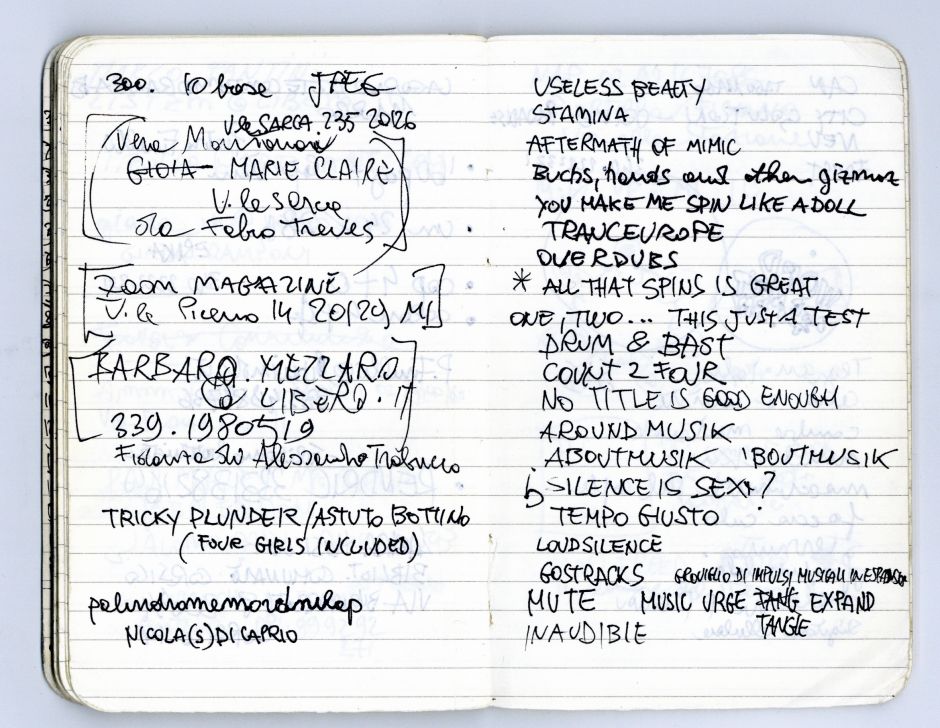 300. 10 base JPEG
V.le SARCA 235 20126
Vera
GIOIA MARIE CLAIRE
V.le Sarca
Fabio Treves
ZOOM MAGAZINE
V.le Piceno 14 20129 MI
BARBARA.MEZZARO
@ LIBERO.IT
339.1980519
Fidanzata di Alessandro
TRICKY PLUNDER/ASTUTO BOTTINO
(FOUR GIRLS INCLUDED)
palindromemordnilap
NICOLA(S) DI CAPRIO
USELESS BEAUTY
STAMINA
AFTERMATH OF MIMIC
Buchs, hands and other gizmoz
YOU MAKE ME SPIN LIKE A DOLL
TRANCEUROPE
OVERDUBS
* ALL THAT SPINS IS GREAT
ONE, TWO... THIS JUST A TEST
DRUM & BAST
COUNT 2 FOUR
NO TITLE IS GOOD ENOUGH
AROUND MUSIK
ABOUTMUSIK 'BOUTMUSIK
SILENCE IS SEXY?
TEMPO GIUSTO
LOUDSILENCE
GOSTRACKS GROVIGLIO DI IMPULSI MUSICALI IN ESPANSIONE
MUTE MUSIC URGE TANG EXPAND
INAUDIBLE TANGLE